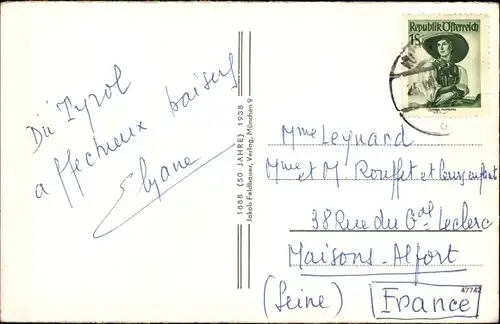 Du Tyrol
affectueux baisers
Elyane
1888 (50 JAHRE) 1938
Jakob Feldbauer, Verlag, München 9
Republik Österreich
1S
Mme Leynard
Mme et M. Rouffet et leurs enfants
38 Rue du Gal Leclerc
Maisons-Alfort
(Seine) France
47742